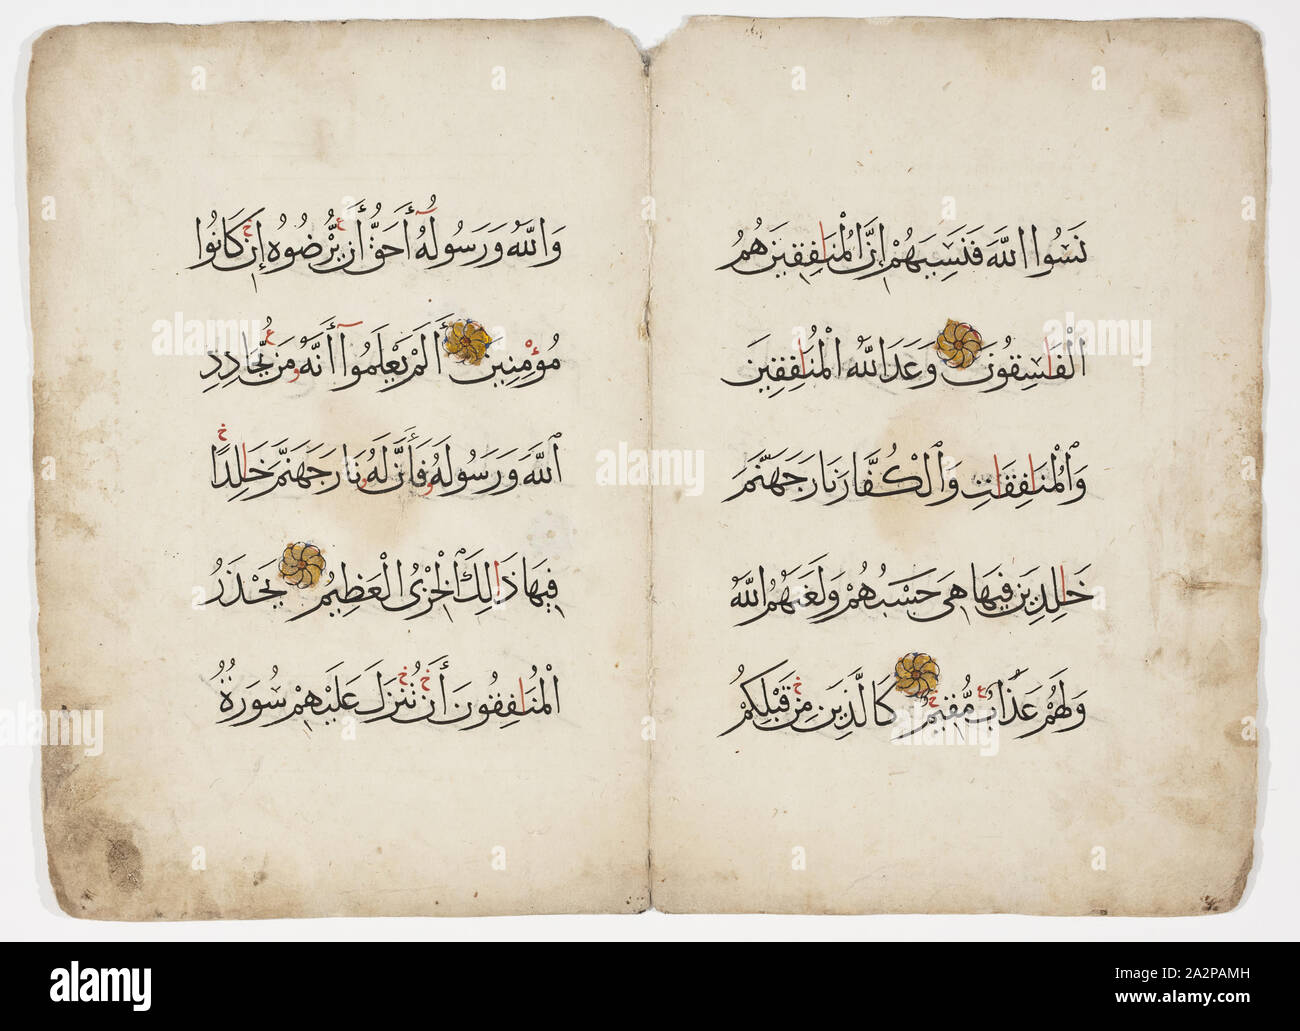 نَسُوا اللَّهَ فَنَسِيَهُمْ إِنَّ الْمُنَافِقِينَ هُمُ
الْفَاسِقُونَ وَعَدَ اللَّهُ الْمُنَافِقِينَ
وَالْمُنَافِقَاتِ وَالْكُفَّارَ نَارَ جَهَنَّمَ
خَالِدِينَ فِيهَا هِيَ حَسْبُهُمْ وَلَعَنَهُمُ اللَّهُ
وَلَهُمْ عَذَابٌ مُّقِيمٌ كَالَّذِينَ مِنْ قَبْلِكُمْ
وَاللَّهُ وَرَسُولُهُ أَحَقُّ أَنْ يُرْضُوهُ إِنْ كَانُوا
مُؤْمِنِينَ أَلَمْ يَعْلَمُوا أَنَّهُ مَنْ يُحَادِدِ
اللَّهَ وَرَسُولَهُ فَأَنَّ لَهُ نَارَ جَهَنَّمَ خَالِدًا
فِيهَا ذَالِكَ الْخِزْىُ الْعَظِيمُ يَحْذَرُ
الْمُنَافِقُونَ أَنْ تُنَزَّلَ عَلَيْهِمْ سُورَةٌ
alamy
a
Image ID: A2PAMH
www.alamy.com